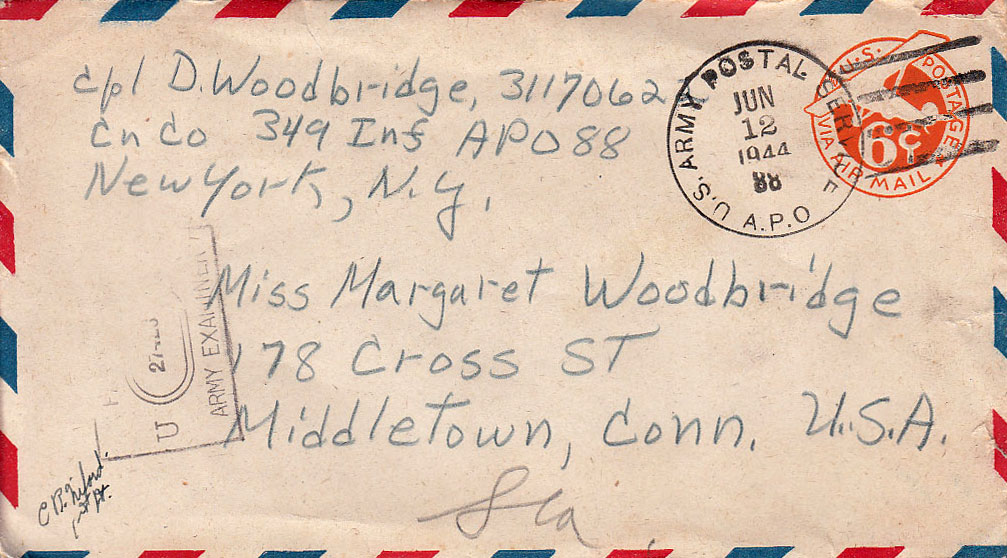 cpl D. Woodbridge, 3117062
Cn Co 349 Inf APO 88
New York, N.Y.
U.S. ARMY POSTAL SERVICE
JUN
12
1944
88
A.P.O
U.S. POSTAGE
VIA AIR MAIL
6¢
Miss Margaret Woodbridge
178 Cross ST
Middletown, Conn. U.S.A.
ARMY EXAMINER
U